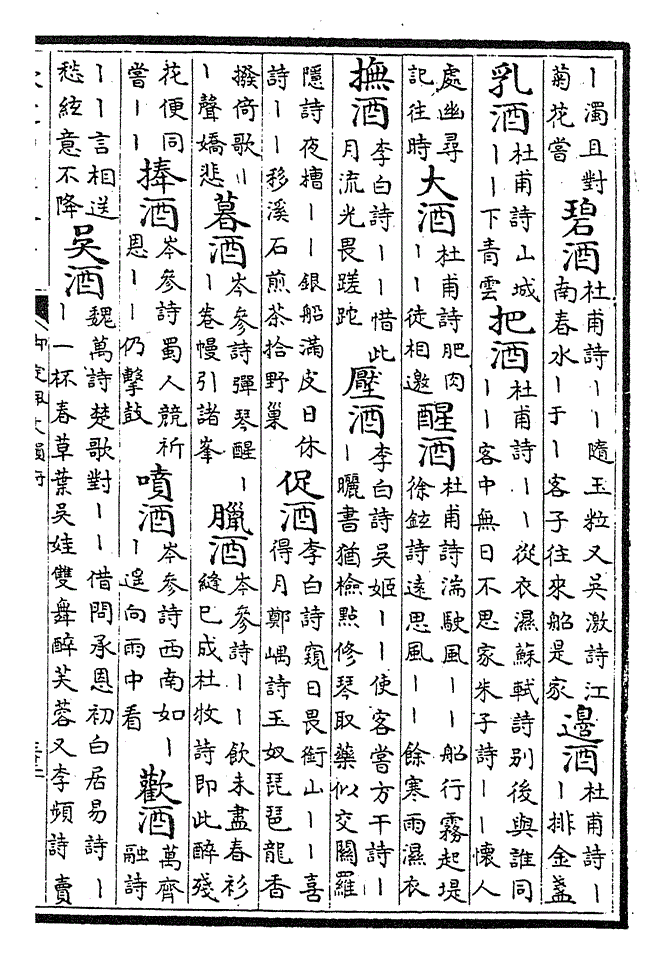 丨濁且對
菊花嘗
碧酒
杜甫詩丨丨隨玉粒又吳激詩江
南春水丨于丨客子往來船是家
邊酒
杜甫詩丨
丨排金盞
乳酒
杜甫詩山城
丨丨下青雲
把酒
杜甫詩丨丨從衣濕蘇軾詩別後與誰同
丨丨客中無日不思家朱子詩丨丨懷人
處幽尋
記往時
大酒
杜甫詩肥肉
丨丨徒相邀
醒酒
杜甫詩湍駛風丨丨船行霧起堤
徐鉉詩遠思風丨丨餘寒雨濕衣
撫酒
李白詩丨丨惜此
月流光畏蹉跎
壓酒
李白詩吳姬丨丨使客嘗方干詩丨
丨曬書猶檢點修琴取藥似交關羅
隱詩夜槽丨丨銀船滿皮日休
詩丨丨移溪石煎茶拾野巢
促酒
李白詩窺日畏銜山丨丨喜
得月鄭嵎詩玉奴琵琶龍香
撥倚歌丨
丨聲嬌悲
暮酒
岑參詩彈琴醒丨
丨卷幔引諸峯
臘酒
岑參詩丨丨飲未盡春衫
縫已成杜牧詩即此醉殘
花便同
嘗丨丨
捧酒
岑參詩蜀人競祈
恩丨丨仍擊鼓
噴酒
岑參詩西南如丨
丨遥向雨中看
歡酒
萬齊
融詩
丨丨言相送
愁絃意不降
吳酒
魏萬詩楚歌對丨丨借問承恩初白居易詩丨
丨一杯春草葉吳娃雙舞醉芙蓉又李頻詩賣